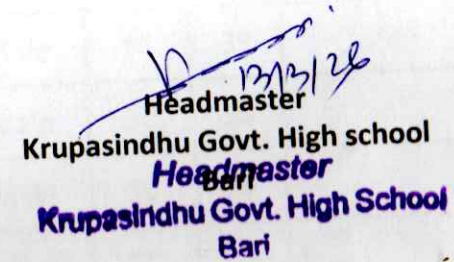 13/3/26
Headmaster
Krupasindhu Govt. High school
Bari
Headmaster
Krupasindhu Govt. High School
Bari